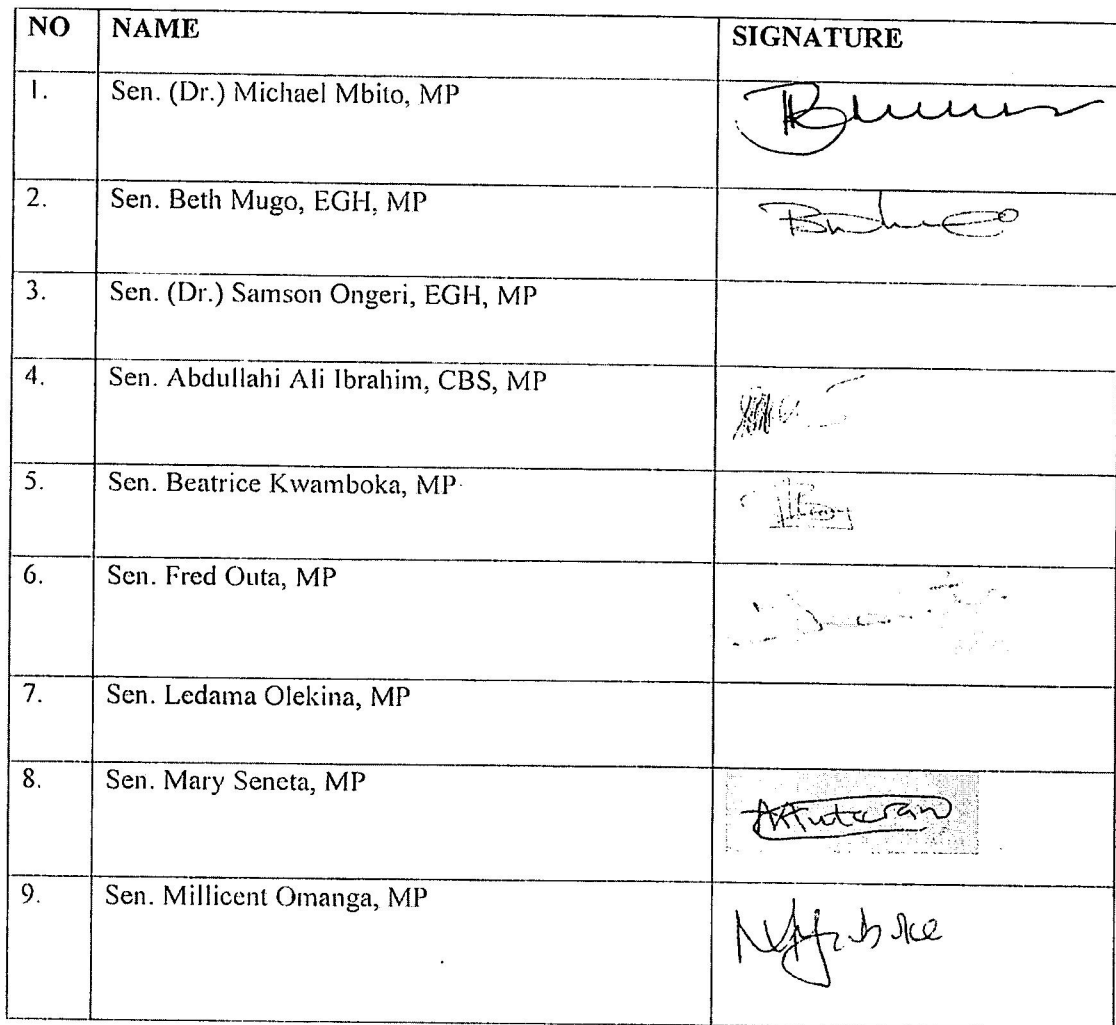 NO NAME SIGNATURE
1. Sen. (Dr.) Michael Mbito, MP
2. Sen. Beth Mugo, EGH, MP
3. Sen. (Dr.) Samson Ongeri, EGH, MP
4. Sen. Abdullahi Ali Ibrahim, CBS, MP
5. Sen. Beatrice Kwamboka, MP
6. Sen. Fred Outa, MP
7. Sen. Ledama Olekina, MP
8. Sen. Mary Seneta, MP
9. Sen. Millicent Omanga, MP